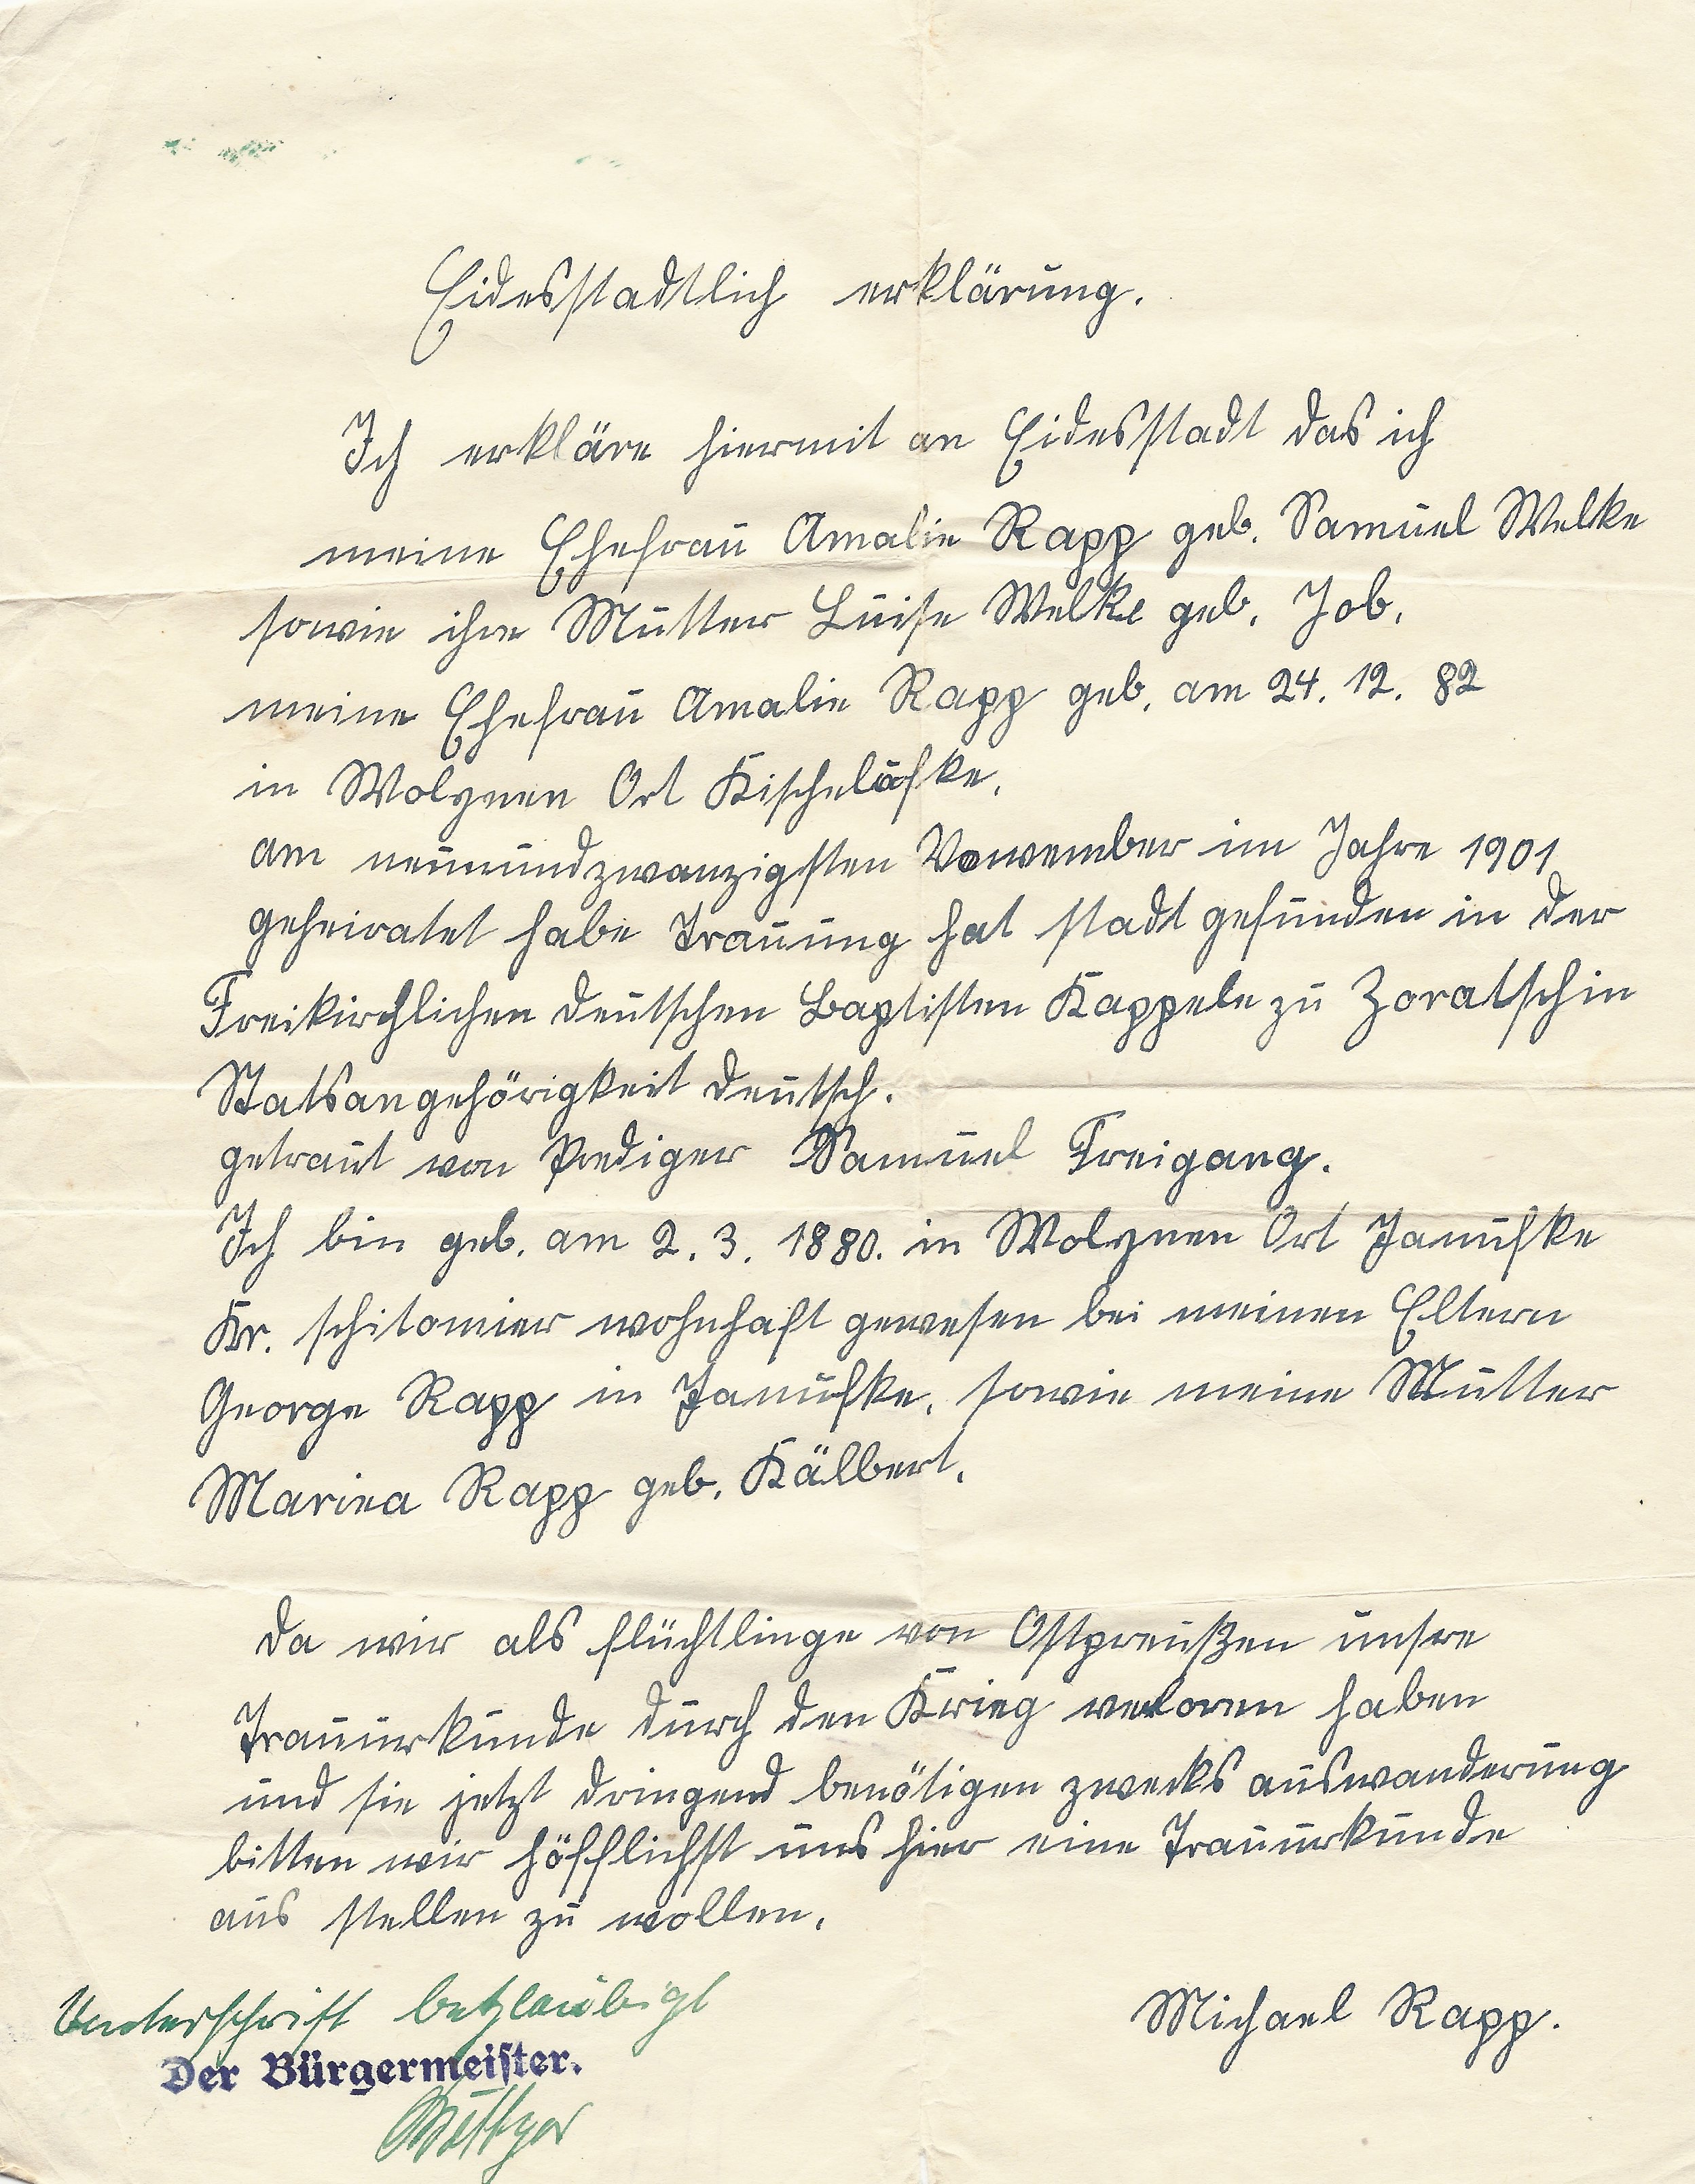 Eidesstadtlich erklärung.
Ich erkläre hiermit an Eidesstadt das ich
meine Ehefrau Amalie Rapp geb. Samuel Welke
sowie ihre Mutter Luise Welke geb. Job.
meine Ehefrau Amalie Rapp geb. am 24. 12. 82
in Wolynen Ort Kischeläfke.
am neunundzwanzigsten Vowember im Jahre 1901
geheiratet habe Trauung hat stadt gefunden in der
Freikirchlichen deutschen Baptisten Kappele zu Zoratschin
Statsangehörigkeit deutsch.
getraut von Prediger Samuel Freigang.
Ich bin geb. am 2. 3. 1880. in Wolynen Ort Janufke
Kr. schitomier wohnhaft gewesen bei meinen Eltern
George Rapp in Janufke. sowie meine Mutter
Mariea Rapp geb. Kälbert.
Da wir als flüchtlinge von Ostpreußen unsre
Trauurkunde durch den Krieg verloren haben
und sie jetzt dringend benötigen zwecks auswanderung
bitten wir höfflichst uns hier eine Trauurkunde
aus stellen zu wollen.
Michael Rapp.
Unterschrift beglaubigt
Der Bürgermeister.